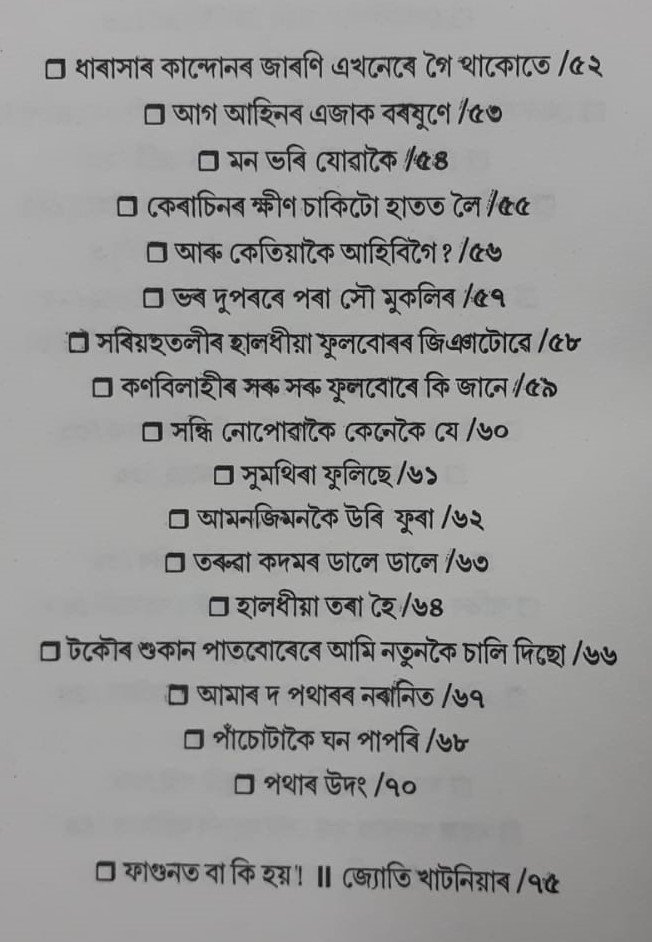 ❐ ধাৰাসাৰ কান্দোনৰ জাৰণি এখনেৰে গৈ থাকোতে /৫২
❐ আগ আহিনৰ এজাক বৰষুণে /৫৩
❐ মন ভৰি যোৱাকৈ /৫৪
❐ কেৰাচিনৰ ক্ষীণ চাকিটো হাতত লৈ /৫৫
❐ আৰু কেতিয়াকৈ আহিবিগৈ? /৫৬
❐ ভৰ দুপৰৰে পৰা সৌ মুকলিৰ /৫৭
❐ সৰিয়হতলীৰ হালধীয়া ফুলবোৰৰ জিঞাটোৱে /৫৮
❐ কণবিলাহীৰ সৰু সৰু ফুলবোৰে কি জানে /৫৯
❐ সন্ধি নোপোৱাকৈ কেনেকৈ যে /৬০
❐ সুমথিৰা ফুলিছে /৬১
❐ আমনজিমনকৈ উৰি ফুৰা /৬২
❐ তৰুৱা কদমৰ ডালে ডালে /৬৩
❐ হালধীয়া তৰা হৈ /৬৪
❐ টকৌৰ শুকান পাতবোৰেৰে আমি নতুনকৈ চালি দিছো /৬৬
❐ আমাৰ দ পথাৰৰ নৰাঁনিত /৬৭
❐ পাঁচোটাকৈ ঘন পাপৰি /৬৮
❐ পথাৰ উদং /৭০
❐ ফাগুনত বা কি হয়! ॥ জ্যোতি খাটনিয়াৰ /৭৫